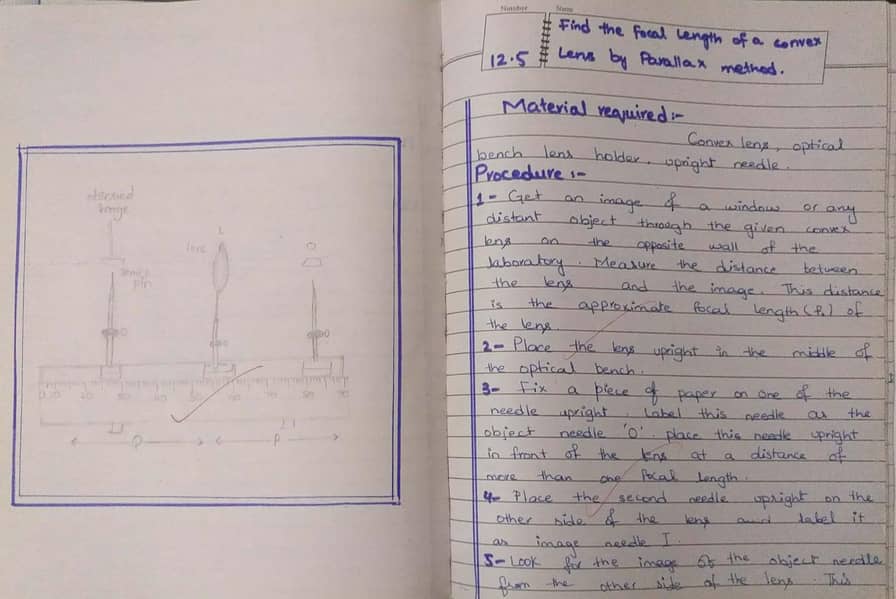 observed
image
L
lens
O
pin
O
O
O
0 10 20 30 40 50 60 70 80 90
q
p
Number
Name
12.5
Find the focal length of a convex
Lens by Parallax method.
Material required:-
Convex lens, optical
bench lens holder, upright needle.
Procedure :-
1- Get an image of a window or any
distant object through the given convex
lens on the opposite wall of the
laboratory. Measure the distance between
the lens and the image. This distance
is the approximate focal length (f) of
the lens.
2- Place the lens upright in the middle of
the optical bench.
3- Fix a piece of paper on one of the
needle upright. Label this needle as the
object needle 'O'. place this needle upright
in front of the lens at a distance of
more than one focal length.
4- Place the second needle upright on the
other side of the lens and label it
as image needle I.
5- Look for the image of the object needle
from the other side of the lens. This